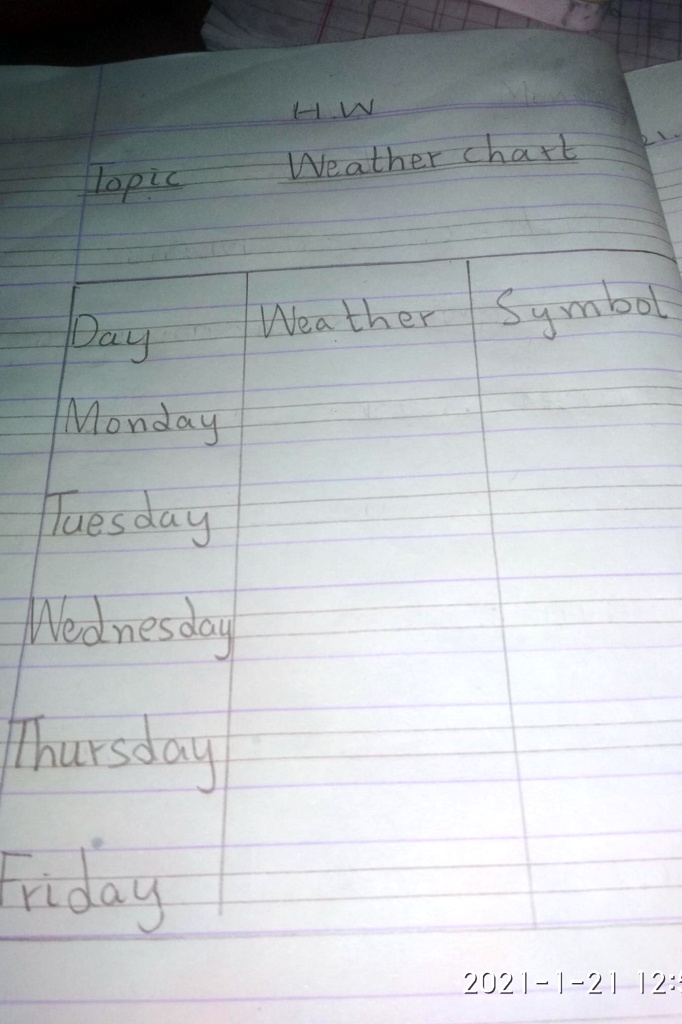 H.W
Topic Weather chart
Day Weather Symbol
Monday
Tuesday
Wednesday
Thursday
Friday
2021-1-21 12: